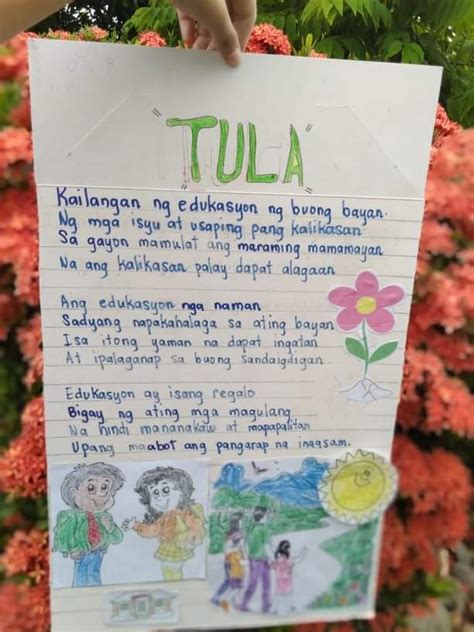 "TULA"
Kailangan ng edukasyon ng buong bayan.
Ng mga isyu at usaping pang kalikasan
Sa gayon mamulat ang maraming mamamayan
Na ang kalikasan palay dapat alagaan
Ang edukasyon nga naman
Sadyang napakahalaga sa ating bayan
Isa itong yaman na dapat ingatan
At ipalaganap sa buong Sandaigdigan
Edukasyon ay isang regalo
Bigay ng ating mga magulang
Na hindi mananakaw at mapapalitan
Upang maabot ang pangarap na inaasam.